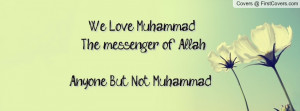 Covers @ FirstCovers.com
We Love Muhammad
The messenger of Allah
Anyone But Not Muhammad